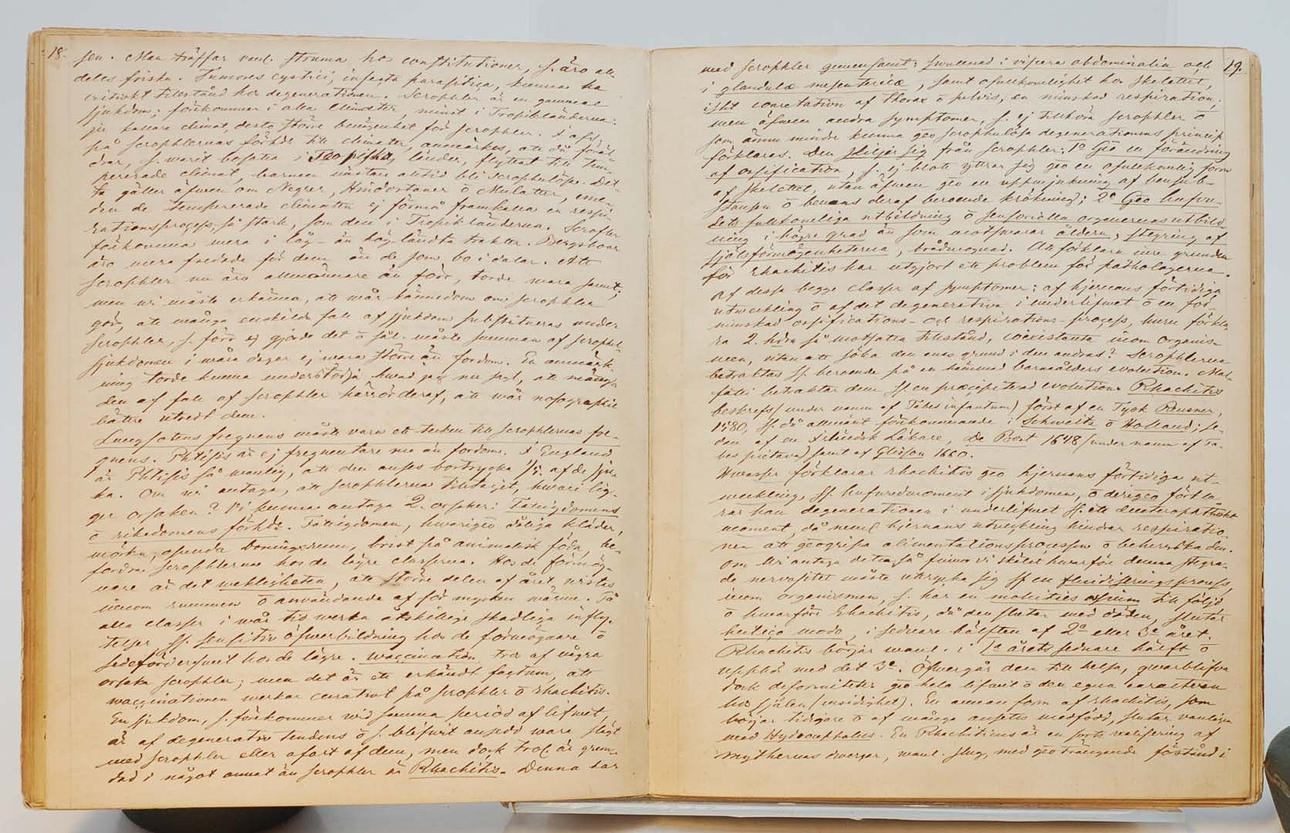 18.
sen. Man träffar vanl. struma hos constitutioner, s. äro alldeles friska. Tumores cystici, infesta parasitica, kunna ha
tillstånd hos degenerationen. Scrophler är en gammal
sjukdom; förekommer i alla climater, minst i Tropikländerna;
ju kallare climat, desto större benägenhet för scrophler.
på scrophlernas förhde till climatet, anmärkes, att då
dar, s. varit bosatta i Tropiska länder, flyttat till tempererade climat, barnen nästan alltid bli scrophulösa. Det
gäller äfven om Negrer, Hindostaner o Mulatter,
den de tempererade climaten ej förmå framkalla en respirationsprocess, så stark, som den i Tropikländerna. Scrophler
förekomma mera i låg- än högländta trakter. Bergsboar
äro mera fredade för dem än de som bo i dalar. Att
scrophler nu äro allmännare än förr, torde vara sannt;
men vi måste erkänna, att vår kännedom om scrophler
gör, att många enskilda fall af sjukdom substitueras under
scrophler, s. förr ej gjorde det o så måste summan af
sjukdomen i våra dagar ej vara större än fordom. En anmärkning torde kunna understödja hvad jag nu sagt, att
den af fall af scrophler härrör deraf, att vår nosographie
bättre utredt dem.
Lungsotens frequens måste vara ett tecken till scrophlernas
Phtisis är ej frequentare nu än fordom. I England
är Phtisis så vanlig, att den anses bortrycka 1/5 af de sjuka. Om vi antaga, att scrophlerna tilltagit, hvari ligger orsaken? Vi kunna antaga 2 orsaker: Fattigdomens
o rikedomens förhde. Fattigdomen, hvarigm dåliga kläder,
mörka, osunda boningsrum, brist på animalisk föda,
fordra scrophlerna hos de lägre classerna. Hos de förmögnare är det vekligheten, att större delen af året vistas
inom rummen o användande af för mycken värme. På
alla classer i vår tid verka åtskilliga skadliga inflytelser ss. sensitiv öfverbildning hos de förmögnare o
sedeförderfvet hos de lägre. Vaccination tros af några
orsaka scrophler; men det är ett erkändt factum, att
vaccinationen verkar curativt på scrophler o rhachitis.
En sjukdom, s. förekommer vid samma period af lifvet,
är af degenerativ tendens o s. blifvit ansedd vara slägt
med scrophler eller afart af dem, men dock trol. är grundad i något annat än scrophler är Rhachitis. Denna har
19.
med scrophler gemensamt: svullnad i viscera abdominalia och
i glandulæ mesentericæ, samt ofullkomlighet hos skelettet,
conformation af thorax o pelvis, en minskad respiration,
men äfven andra symptomer, s. ej tillhöra scrophler o
som ännu mindre kunna gm scrophulösa degenerationens princip
förklaras. Den skiljer sig från scrophler: 1° Gm en förändring
af ossification, s. ej blott yttrar sig gm en ofullkomlig form
af skelettet, utan äfven gm en uppmjukning af bensubstansen o benens deraf beroende krökning; 2° Gm hufvudets fullkomliga utbildning o sensoriella organernas utbildning i högre grad än som motsvarar åldern, stegring af
själsförmögenheterna, brådmognad. Att förklara inre grunden
för Rhachitis har utgjort ett problem för pathologerna.
Af dessa begge classer af symptomer: af hjernans förtidiga
utveckling o af det degenerativa i underlifvet o en förminskad ossifications- och respirations-process, huru förklara 2 hvarandra så motsatta tillstånd, coëxistenta inom organismen, utan att söka den enas grund i den andras? Scrophlerna
betraktas ss. beroende på en hämmad barnaålders evolution.
betrakta dem ss. en præcipiterad evolution. Rhachitis
beskrefs (under namn af Tabes infantum) först af en Tysk Reusner,
1580, ss. då allmänt förekommande i Schweitz o Holland; sedan af en Fländsk Läkare, de Boot 1648 (under namn af Tabes pectorea) samt af Glisson 1660.
Hvasser förklarar rhachitis gm hjernans förtidiga utveckling, ss. hufvudmoment i sjukdomen, o derigm förklarar han degenerationen i underlifvet ss. ett deuteropathiskt
moment, då neml. hjernans utveckling hindrar respirationen att gm gripa alimentationsprocessen o beherrska den.
Om vi antaga detta så finna vi skälet hvarför denna stegrade nervositet måste uttrycka sig ss. en fluidiseringsprocess
inom organismen, s. har en mollities ossium till följd
o hvarföre Rhachitis, då den slutar med döden, slutar
hastigo modo, i sednare hälften af 2a eller 3e året.
Rhachitis börjar vanl. i 1a årets sednare hälft o
upphör med det 3e. Öfvergår den till helsa, qvarblifva
dock deformiteter gm hela lifvet o den egna caracteren
hos själen (vrsidighet). En annan form af rhachitis, som
börjar tidigare o af många anses medfödd, slutar vanligen
med Hydrocephalus. En Rhachiticus är en sorts realisering af
mythernas dvergar, vanl. slug, med gm trängande förstånd i